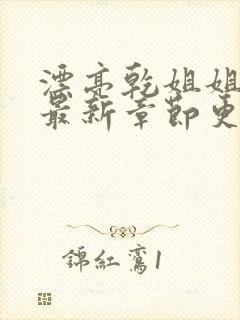 漂亮乾姐姐
最新章節更
錦紅鸞1